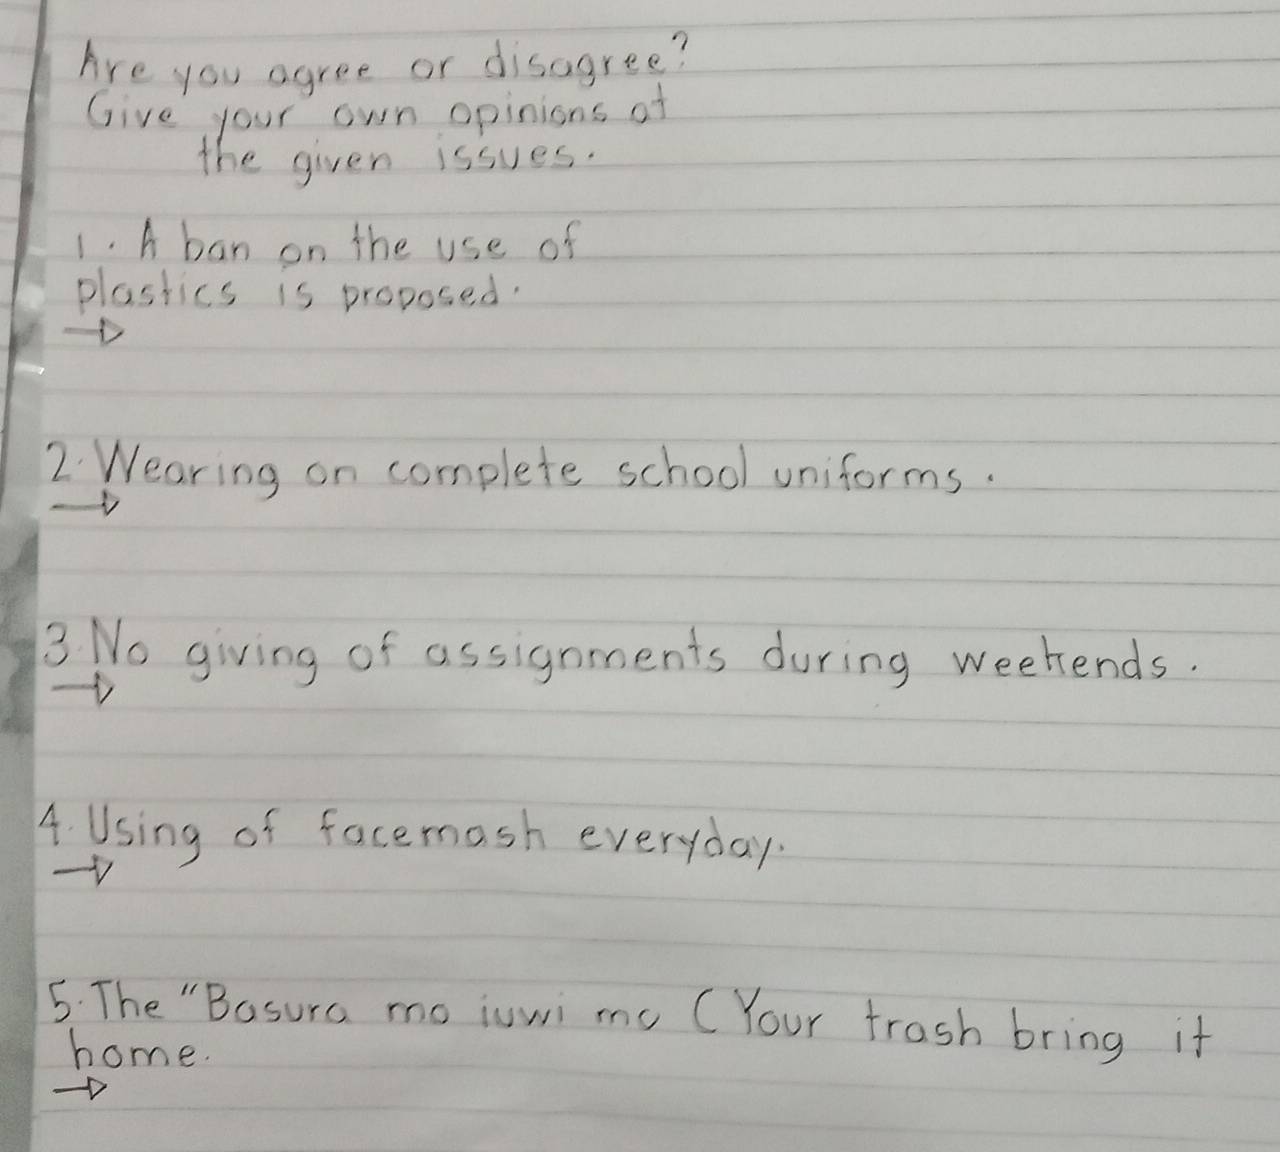 Are you agree or disagree?
Give your own opinions of
the given issues.
1. A ban on the use of
plastics is proposed.
2. Wearing on complete school uniforms.
3. No giving of assignments during weekends.
4. Using of facemask everyday.
5. The "Basura mo iuwi mo (Your trash bring it
home.